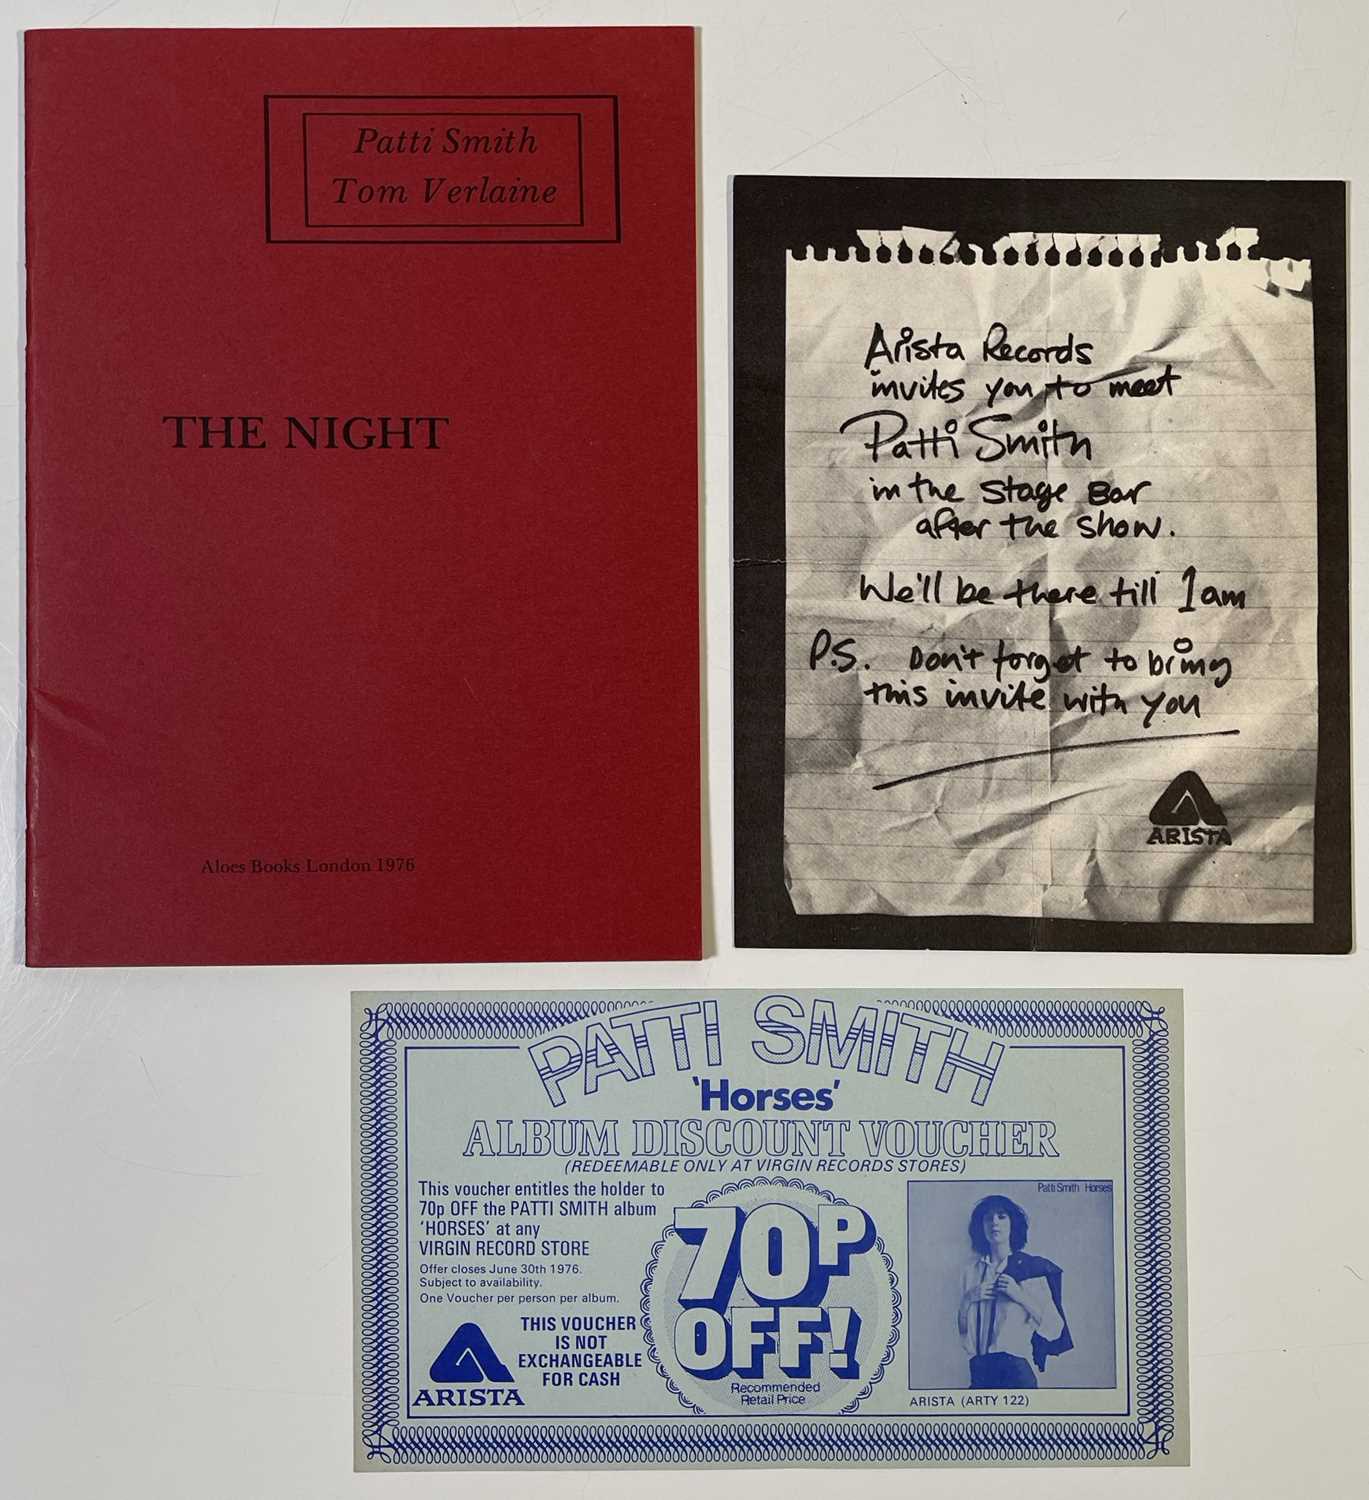 Patti Smith
Tom Verlaine
THE NIGHT
Aloes Books London 1976
Arista Records
invites you to meet
Patti Smith
in the stage Bar
after the show.
We'll be there till 1am
P.S. Don't forget to bring
this invite with you
ARISTA
PATTI SMITH
'Horses'
ALBUM DISCOUNT VOUCHER
(REDEEMABLE ONLY AT VIRGIN RECORDS STORES)
This voucher entitles the holder to
70p OFF the PATTI SMITH album
'HORSES' at any
VIRGIN RECORD STORE
Offer closes June 30th 1976.
Subject to availability.
One Voucher per person per album.
THIS VOUCHER
IS NOT
EXCHANGEABLE
FOR CASH
ARISTA
70P
OFF!
Recommended
Retail Price
Patti Smith Horses
ARISTA (ARTY 122)